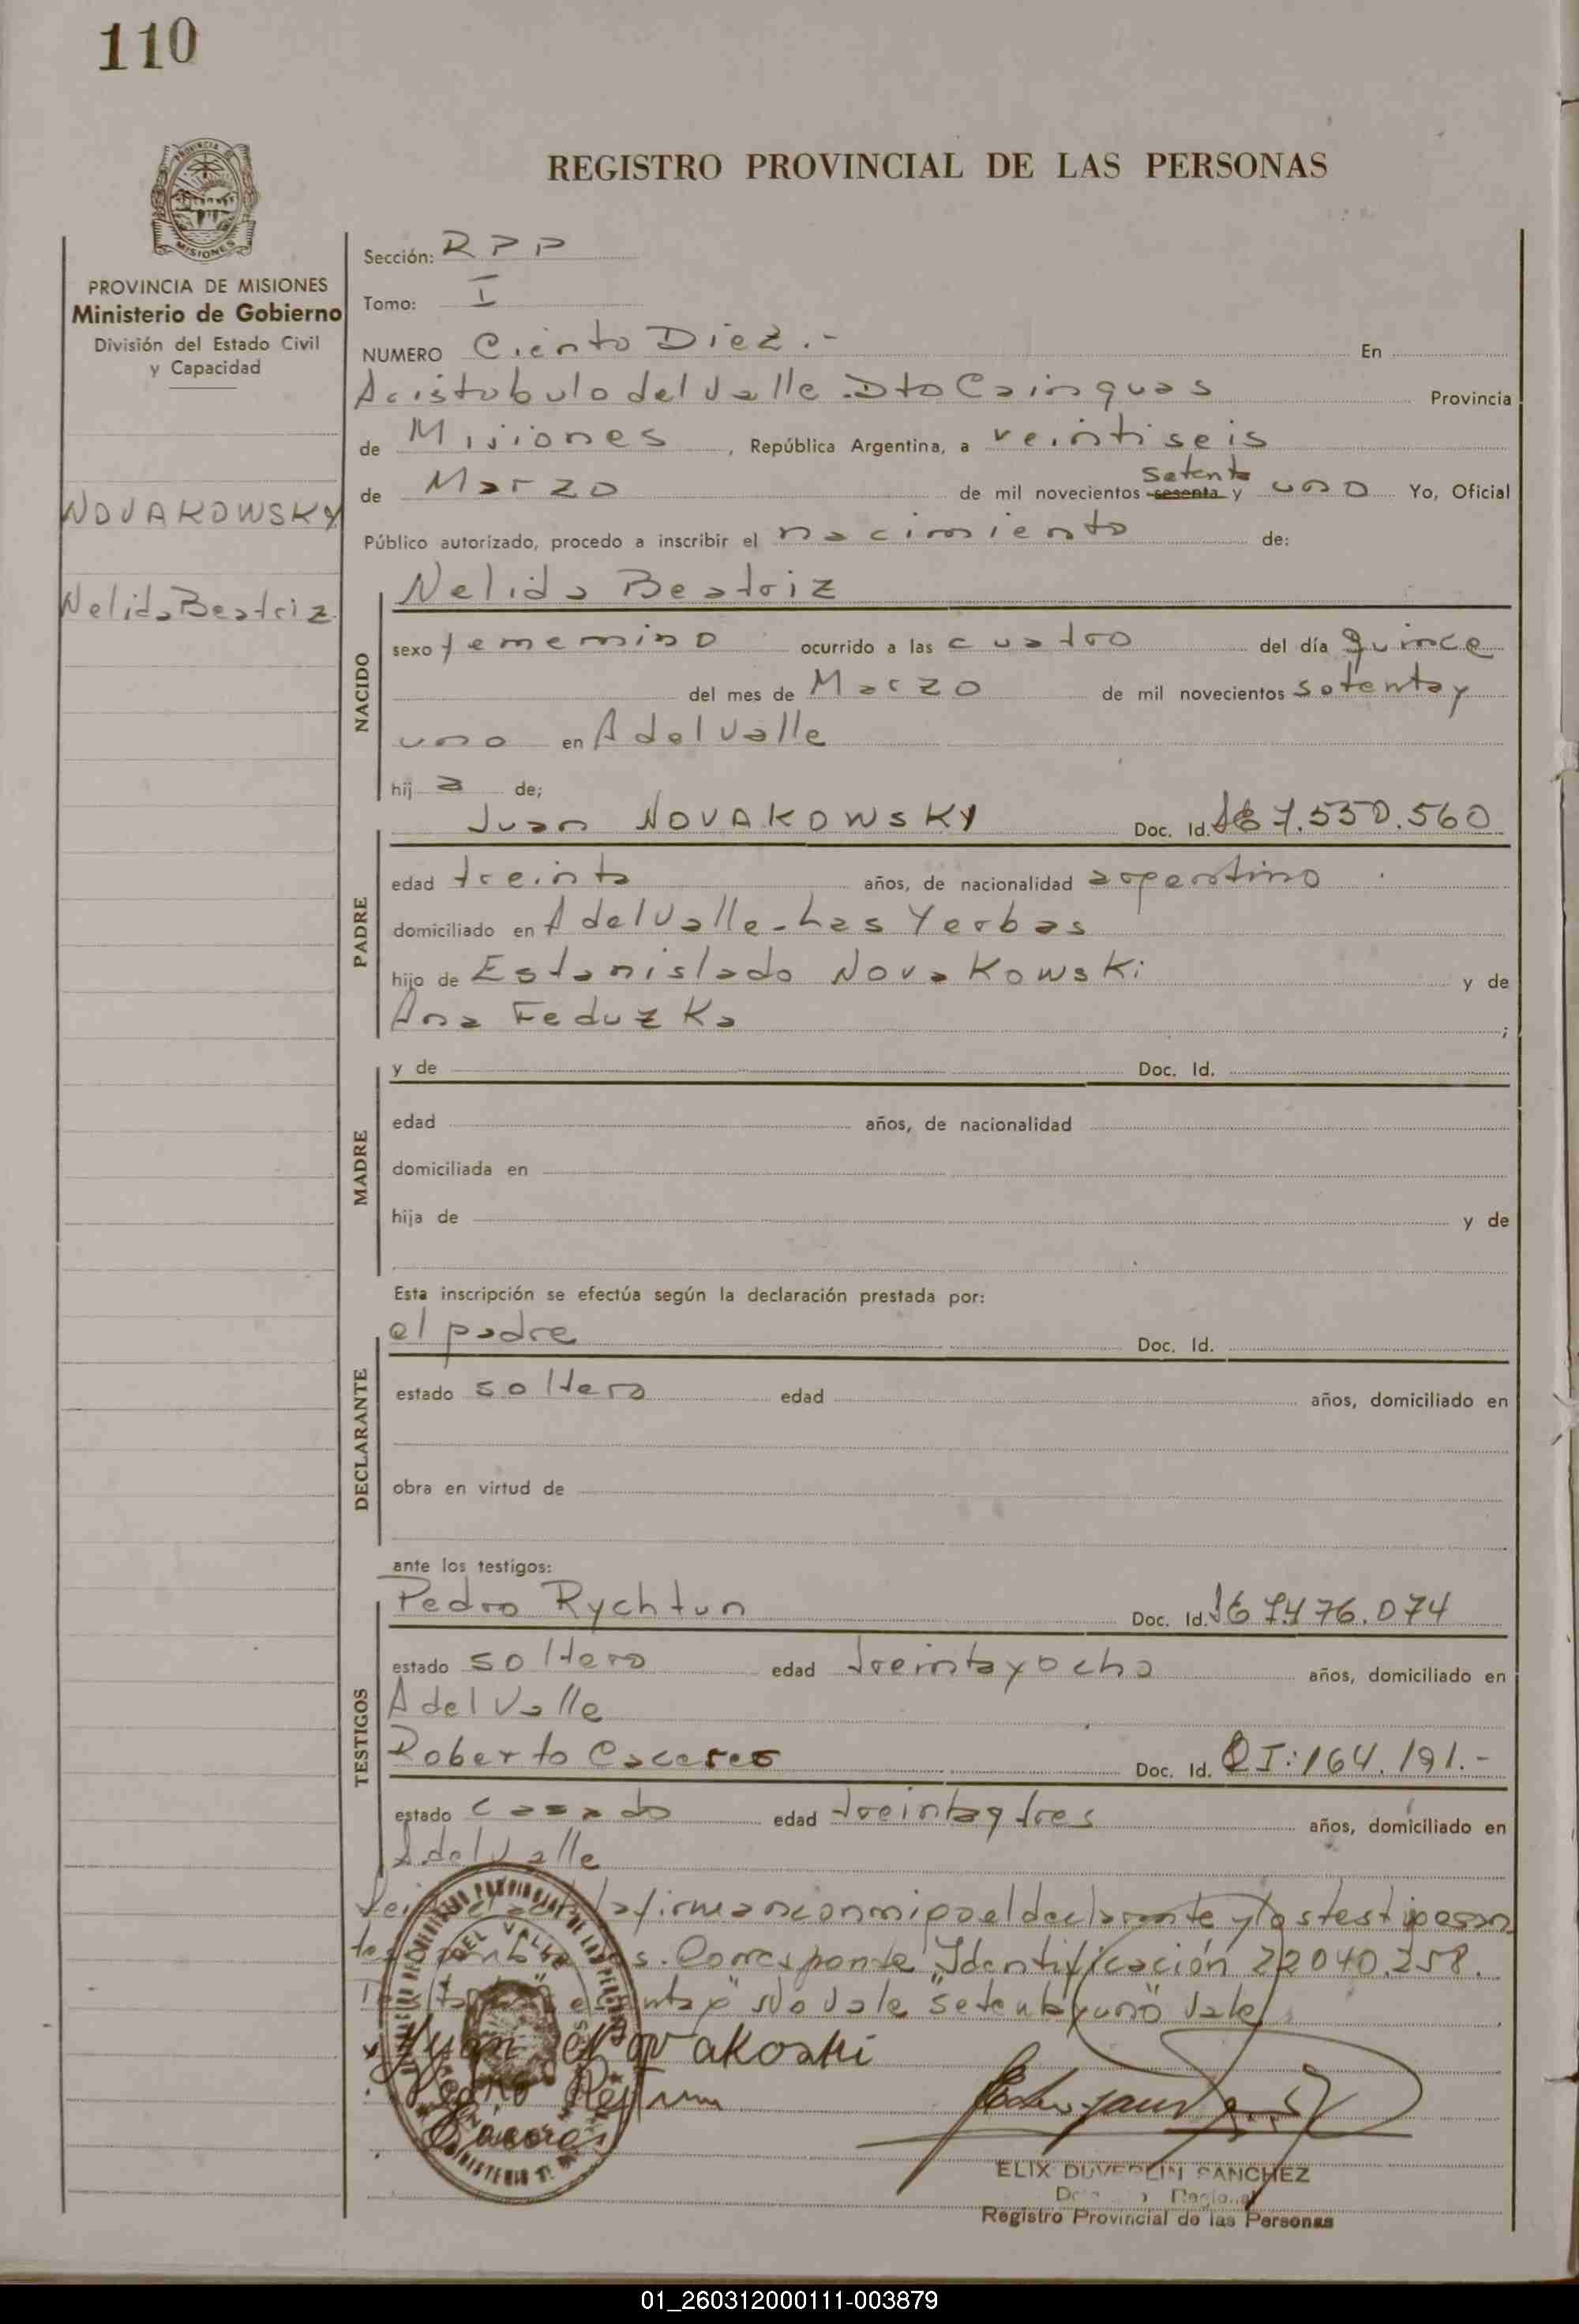 110
REGISTRO PROVINCIAL DE LAS PERSONAS
PROVINCIA
MISIONES
PROVINCIA DE MISIONES
Ministerio de Gobierno
División del Estado Civil
y Capacidad
NOVAKOWSKY
Nelida Beatriz
Sección: RPP
Tomo: I
NUMERO Ciento Diez.- En
Aristobulo del Valle.Dto Cainguas Provincia
de Misiones, República Argentina, a veintiseis
Setenta
de Marzo de mil novecientos sesenta y uno Yo, Oficial
Público autorizado, procedo a inscribir el nacimiento de:
Nelida Beatriz
NACIDO
sexo femenino ocurrido a las cuatro del día quince
del mes de Marzo de mil novecientos setenta y
uno en A del Valle
hija de;
PADRE
Juan NOVAKOWSKY Doc. Id. 7.550.560
edad treinta años, de nacionalidad argentino
domiciliado en A del Valle-Las Yerbas
hijo de Estanislado Novakowski y de
Ana Feduzka;
MADRE
y de Doc. Id.
edad años, de nacionalidad
domiciliada en
hija de y de
Esta inscripción se efectúa según la declaración prestada por:
DECLARANTE
el padre Doc. Id.
estado soltero edad años, domiciliado en
obra en virtud de
ante los testigos:
TESTIGOS
Pedro Rychtun Doc. Id. 7.476.074
estado soltero edad treinta y ocho años, domiciliado en
A del Valle
Roberto Caceres Doc. Id. CI:164.191.-
estado casado edad treinta y tres años, domiciliado en
A.del Valle
la firman conmigo el declarante y los testigos an
tes. Corresponde "Identificación 22040.258.
No Vale "setenta y uno" Vale
Juan Novakoski
Caceres
ELIX DUVERLIN SANCHEZ
Registro Provincial de las Personas
01_260312000111-003879